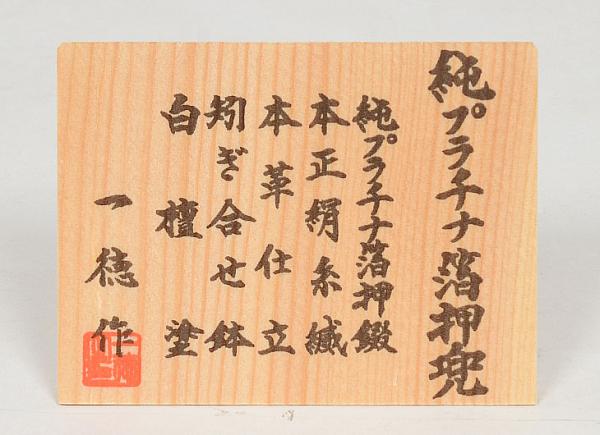 純プラチナ箔押兜
純プラチナ箔押錣
本正絹糸縅
本革仕立
矧ぎ合せ鉢
白檀塗
一徳作